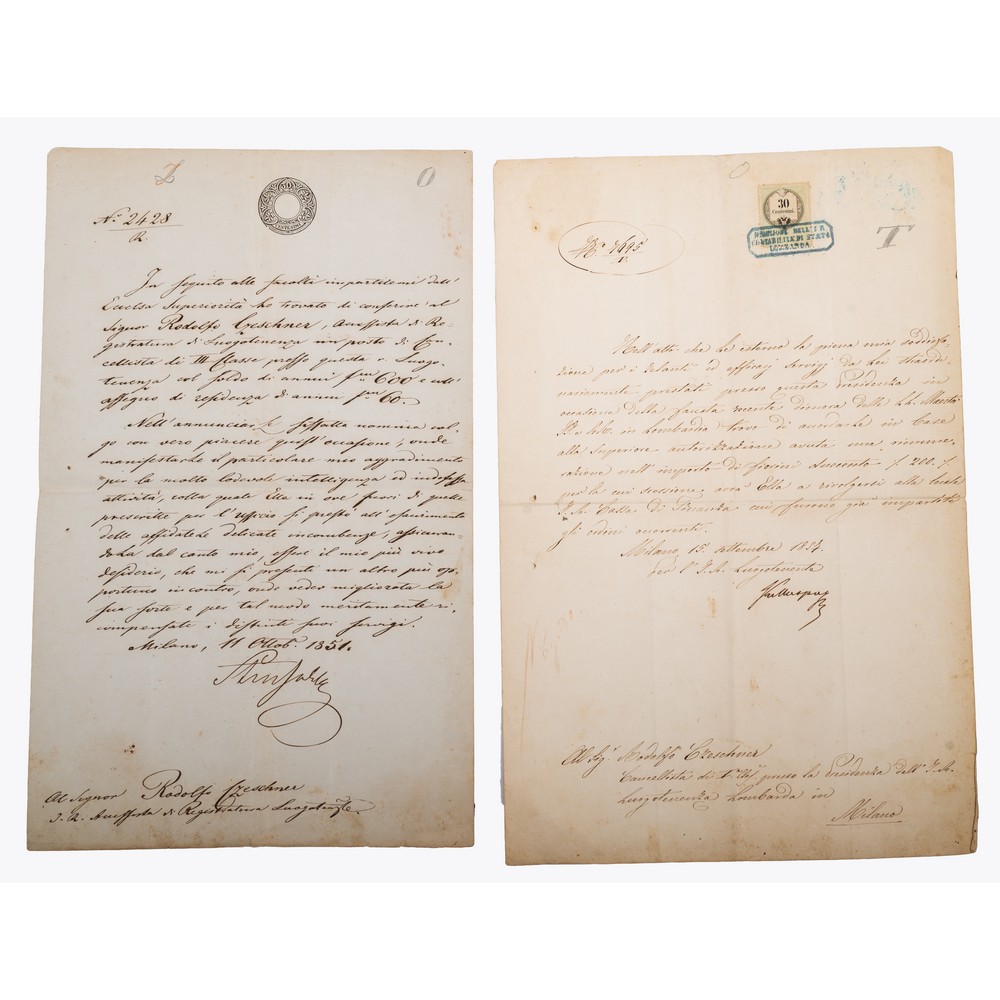 Z
O
Nº 2428
R.
30
CENTESIMI
In seguito alle facoltà impartitemi dall'
Eccelsa Superiorità ho trovato di conferire al
Signor Rodolfo Czeschner, Anessista di Re-
gistratura di Luogotenenza un posto di Can-
cellista di III Classe presso questa Luogo-
tenenza col soldo di annui 600 e coll'
assegno di residenza di annui 60.
Nell'annunciar siffatta nomina col-
go con vero piacere quest'occasione, onde
manifestarle il particolare mio aggradimento
per la molto lodevole intelligenza ed indefessa
attività, colla quale Ella in ore fuori di quelle
prescritte per l'Ufficio si prestò all'esaurimento
delle affidatele delicate incombenze, assicuran-
dola dal canto mio, essere il mio più vivo
desiderio, che mi si presenti un altro più op-
portuno incontro, onde veder migliorata la
sua sorte e per tal modo meritamente ri-
compensati i distinti suoi servigi.
Milano, 11 Ottob. 1851.
Al Signor Rodolfo Czeschner
I. R. Anessista di Registratura Luogotenzle
O
T
30
Centesimi
CONTABILITÀ DI STATO
LOMBARDA
Nº 7695
Nell'atto che Le esterno la piena mia soddisfa-
zione per i zelanti ed efficaci servigj da Lei straordi-
nariamente prestati presso questa Presidenza in
occasione della fausta recente dimora delle LL. Maestà
in Lombardia trovo di accordarle in base
alla Superiore autorizzazione avuta una rimune-
razione nell'importo di fiorini duecento f. 200. f.
per la cui scossione, avrà Ella a rivolgersi alla locale
I. R. Cassa di Finanza cui furono già impartiti
gli ordini occorrenti.
Milano, 15. settembre 1857.
per l'I. R. Luogotenente
Al Sigr Rodolfo Czeschner
Cancellista di presso la Presidenza dell'I. R.
Luogotenenza Lombarda in
Milano